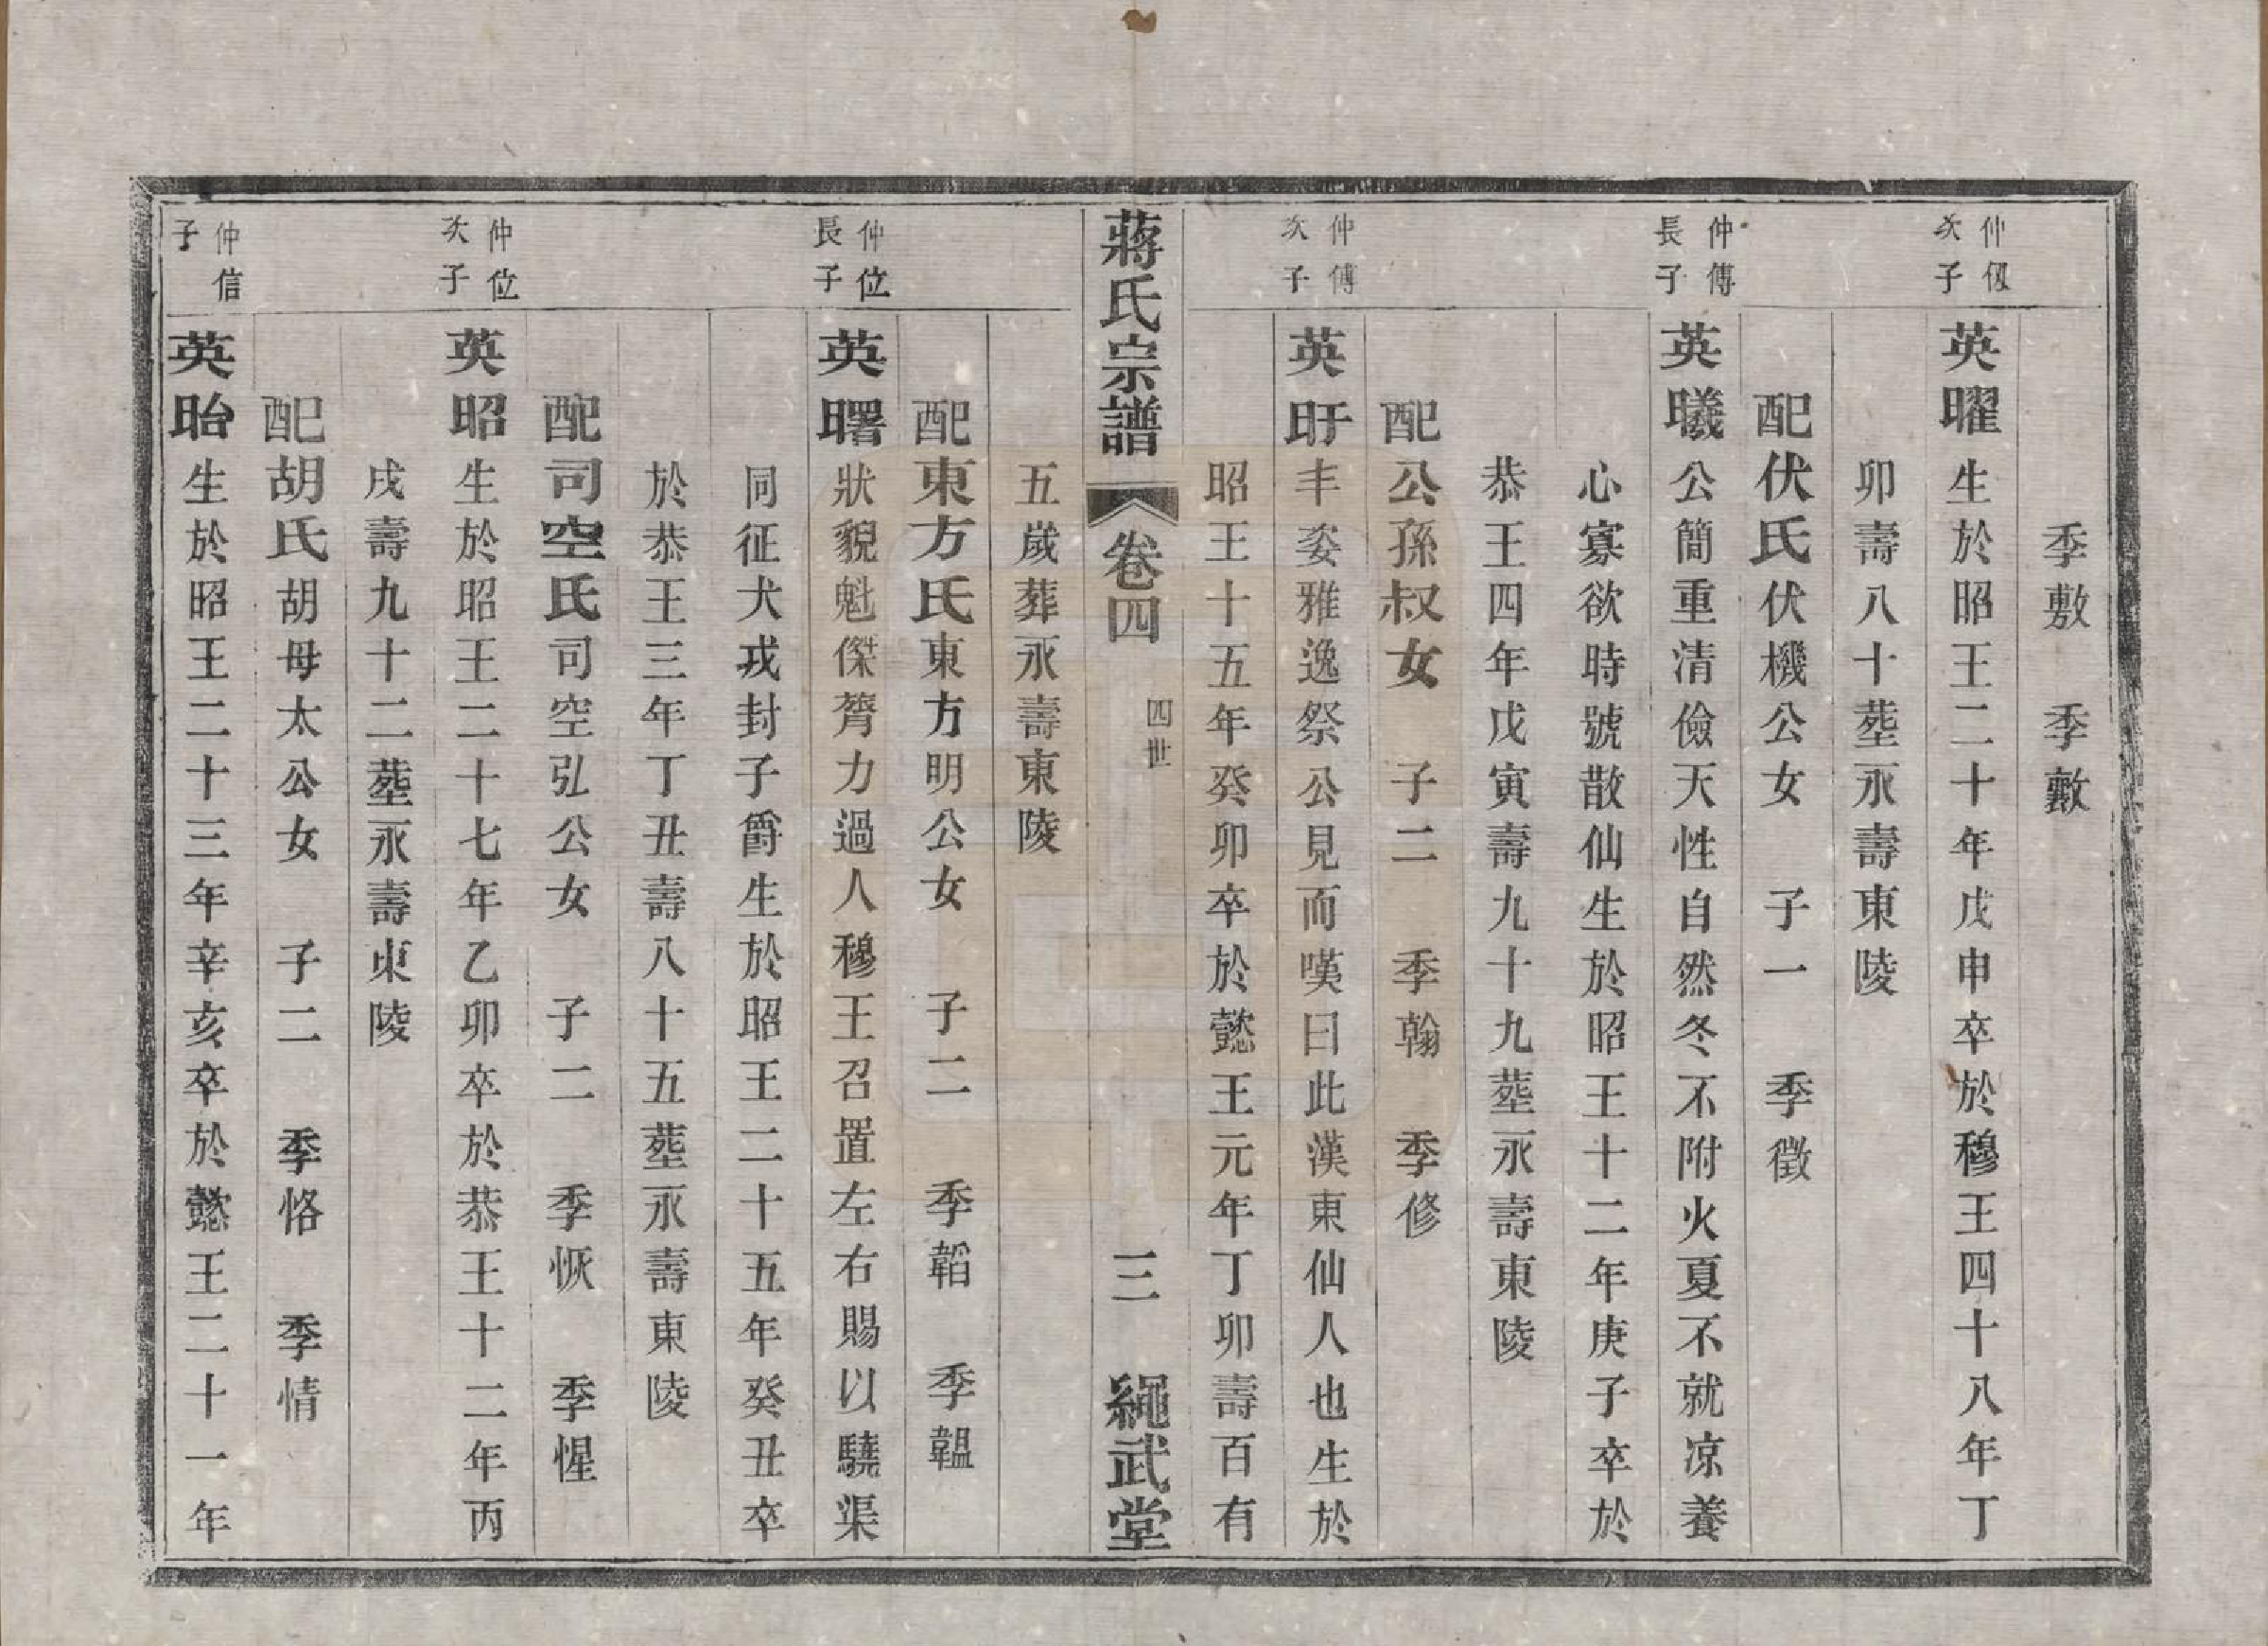 季敷　季數
仲㑪次子
英曜生於昭王二十年戊申卒於穆王四十八年丁
卯壽八十塟永壽東陵
配伏氏伏機公女　子一　季徵
仲傅長子
英曦公簡重清儉天性自然冬不附火夏不就凉養
心寡欲時號散仙生於昭王十二年庚子卒於
恭王四年戊寅壽九十九塟永壽東陵
配公孫叔女　子二　季翰　季修
仲傅次子
英盱丰姿雅逸祭公見而嘆曰此漢東仙人也生於
昭王十五年癸卯卒於懿王元年丁卯壽百有
蔣氏宗譜　卷四　四世　三　繩武堂
五歲葬永壽東陵
配東方氏東方明公女　子二　季韜　季韞
仲位長子
英曙狀貌魁傑膂力過人穆王召置左右賜以驍渠
同征犬戎封子爵生於昭王二十五年癸丑卒
於恭王三年丁丑壽八十五塟永壽東陵
配司空氏司空弘公女　子二　季恢　季惺
仲位次子
英昭生於昭王二十七年乙卯卒於恭王十二年丙
戌壽九十二塟永壽東陵
配胡氏胡母太公女　子二　季恪　季情
仲信子
英昣生於昭王二十三年辛亥卒於懿王二十一年